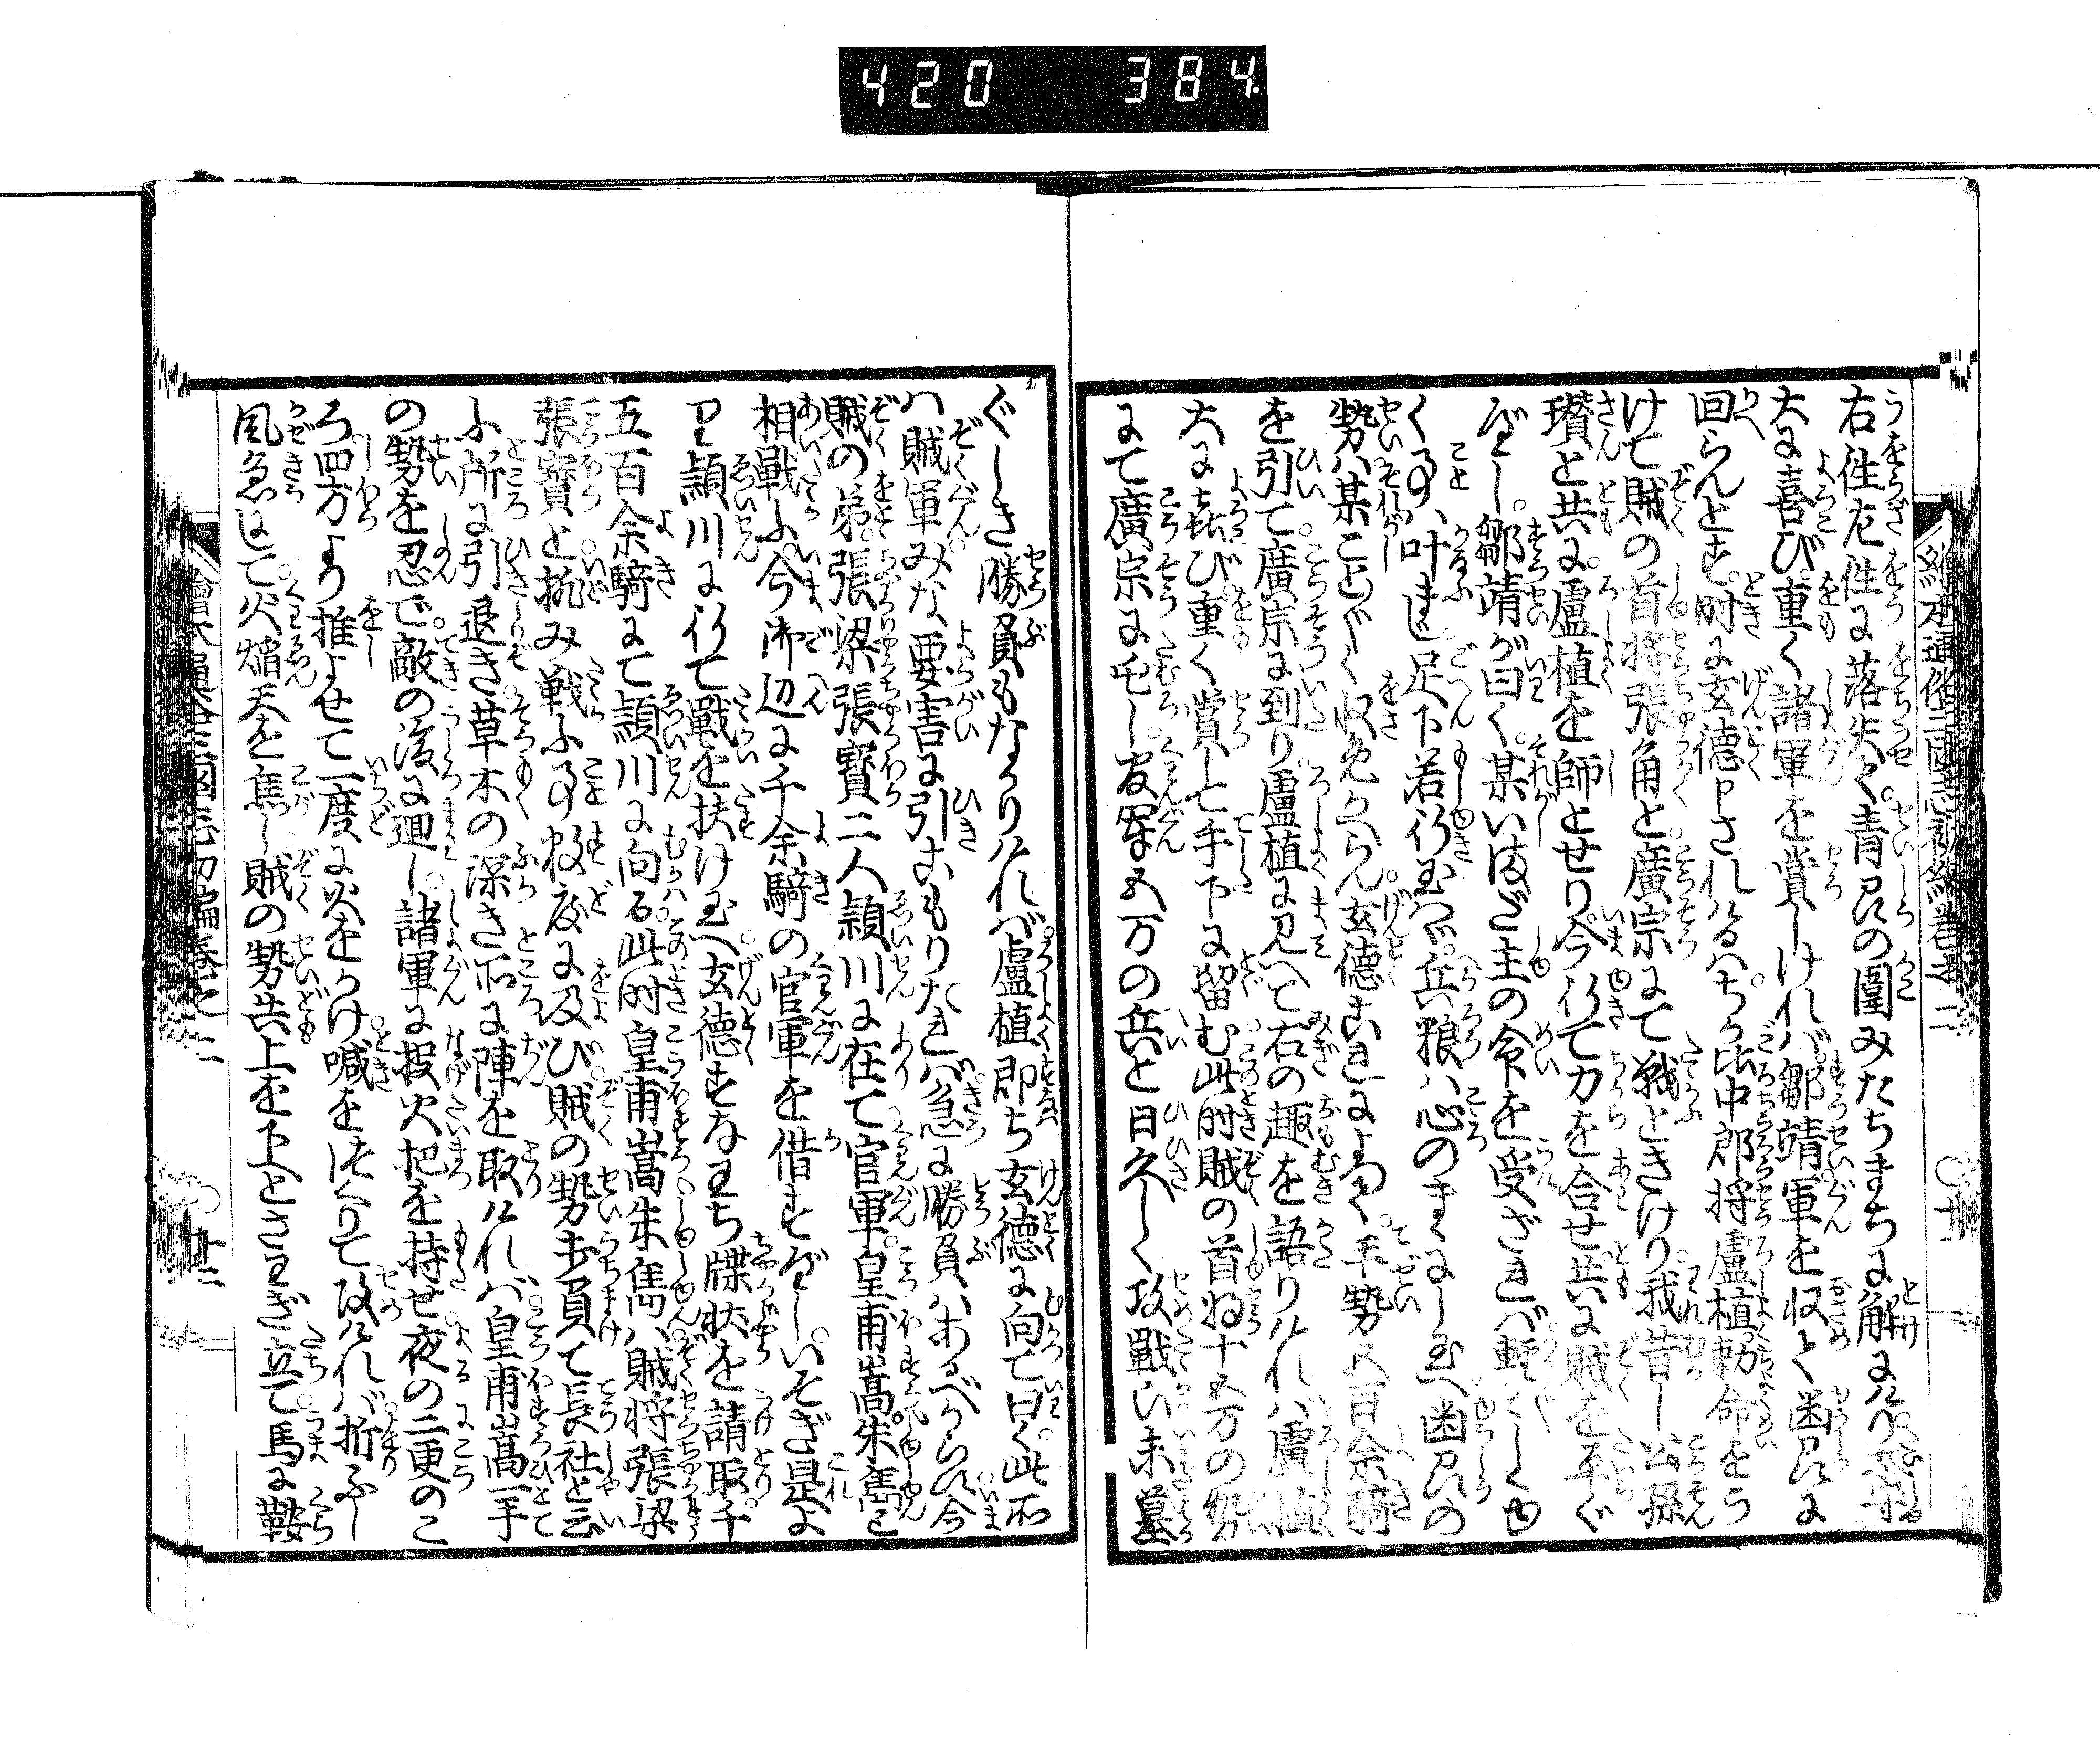 420 384
右往左往に落失て青州の圍みたちまちに解にけり
大に喜び重く諸軍を賞しければ鄒靖軍を収て幽州に
回らんとす時に玄徳申されけるはちか比中郎将盧植勅命をう
けて賊の首将張角と廣宗にて戦ときけり我昔し公孫
瓚と共に盧植を師とせり今行て力を合せ共に賊を平ぐ
べし鄒靖が曰く某いまだ主の命を受ざれば軽〳〵しくゆ
く事叶まじ足下若行玉はゞ兵粮は心のまゝにし玉へ幽州の
勢は某こと〴〵く収めかへらん玄徳これによつて手勢五百余騎
を引て廣宗に到り盧植に見へて右の趣を語りければ盧植
大に喜び重く賞して手下に留む此時賊の首将十五万の勢
にて廣宗に屯し官軍五万の兵と日久しく攻戦い未墓
〴〵しき勝負もなかりければ盧植即ち玄徳に向て曰く此所
は賊軍みな要害に引こもりたれば急に勝負はあるべからず今
賊の弟張梁張寳二人潁川に在て官軍皇甫嵩朱雋と
相戦ふ今御辺に千余騎の官軍を借すべしいそぎ是よ
り潁川に行て戦を扶け玉へ玄徳すなはち牒状を請取千
五百余騎にて潁川に向る此時皇甫嵩朱雋は賊将張梁
張寳と挑み戦ふ事数度に及び賊の勢打負て長社と云
ふ所に引退き草木の深き所に陣を取ければ皇甫嵩一手
の勢を忍で敵の後に廻し諸軍に投火把を持せ夜の二更のこ
ろ四方より推よせて一度に火をかけ喊をつくりて攻ければ折ふし
風急にて火焔天を焦し賊の勢共上を下へとさはぎ立て馬に鞍